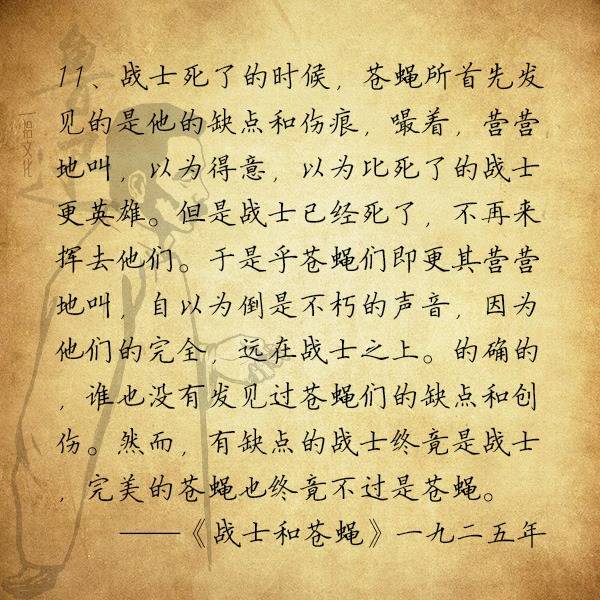 11、战士死了的时候，苍蝇所首先发
见的是他的缺点和伤痕，嘬着，营营
地叫，以为得意，以为比死了的战士
更英雄。但是战士已经死了，不再来
挥去他们。于是乎苍蝇们即更其营营
地叫，自以为倒是不朽的声音，因为
他们的完全，远在战士之上。的确的
，谁也没有发见过苍蝇们的缺点和创
伤。然而，有缺点的战士终竟是战士
，完美的苍蝇也终竟不过是苍蝇。
——《战士和苍蝇》一九二五年